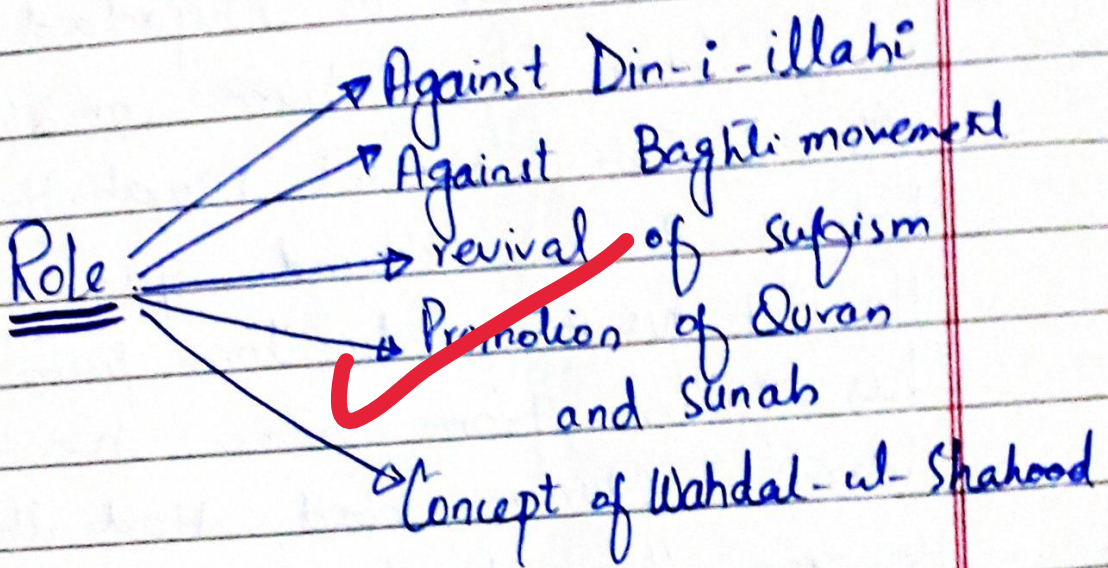 Against Din-i-illahi
Against Baghti movement
Role
revival of sufism
Promotion of Quran
and sunah
Concept of Wahdat-ul-Shahood